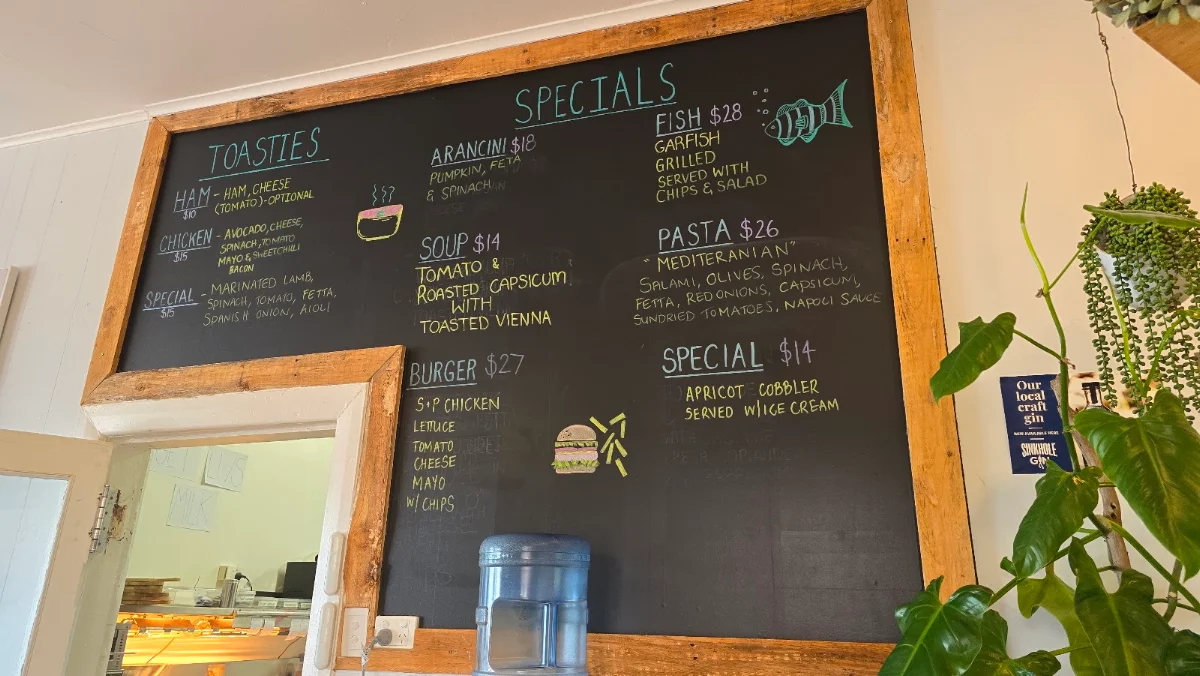 SPECIALS
TOASTIES
HAM - HAM, CHEESE
$10 (TOMATO)-OPTIONAL
CHICKEN - AVOCADO, CHEESE,
$15 SPINACH, TOMATO
MAYO & SWEETCHILI
BACON
SPECIAL - MARINATED LAMB,
$15 SPINACH, TOMATO, FETTA,
SPANISH ONION, AIOLI
ARANCINI $18
PUMPKIN, FETA
& SPINACH
SOUP $14
TOMATO &
ROASTED CAPSICUM
WITH
TOASTED VIENNA
BURGER $27
S+P CHICKEN
LETTUCE
TOMATO
CHEESE
MAYO
W/ CHIPS
FISH $28
GARFISH
GRILLED
SERVED WITH
CHIPS & SALAD
PASTA $26
"MEDITERANIAN"
SALAMI, OLIVES, SPINACH,
FETTA, RED ONIONS, CAPSICUM,
SUNDRIED TOMATOES, NAPOLI SAUCE
SPECIAL $14
APRICOT COBBLER
SERVED W/ICE CREAM
Our
local
craft
gin
NOW AVAILABLE HERE
SINKHOLE
GIN
MILK